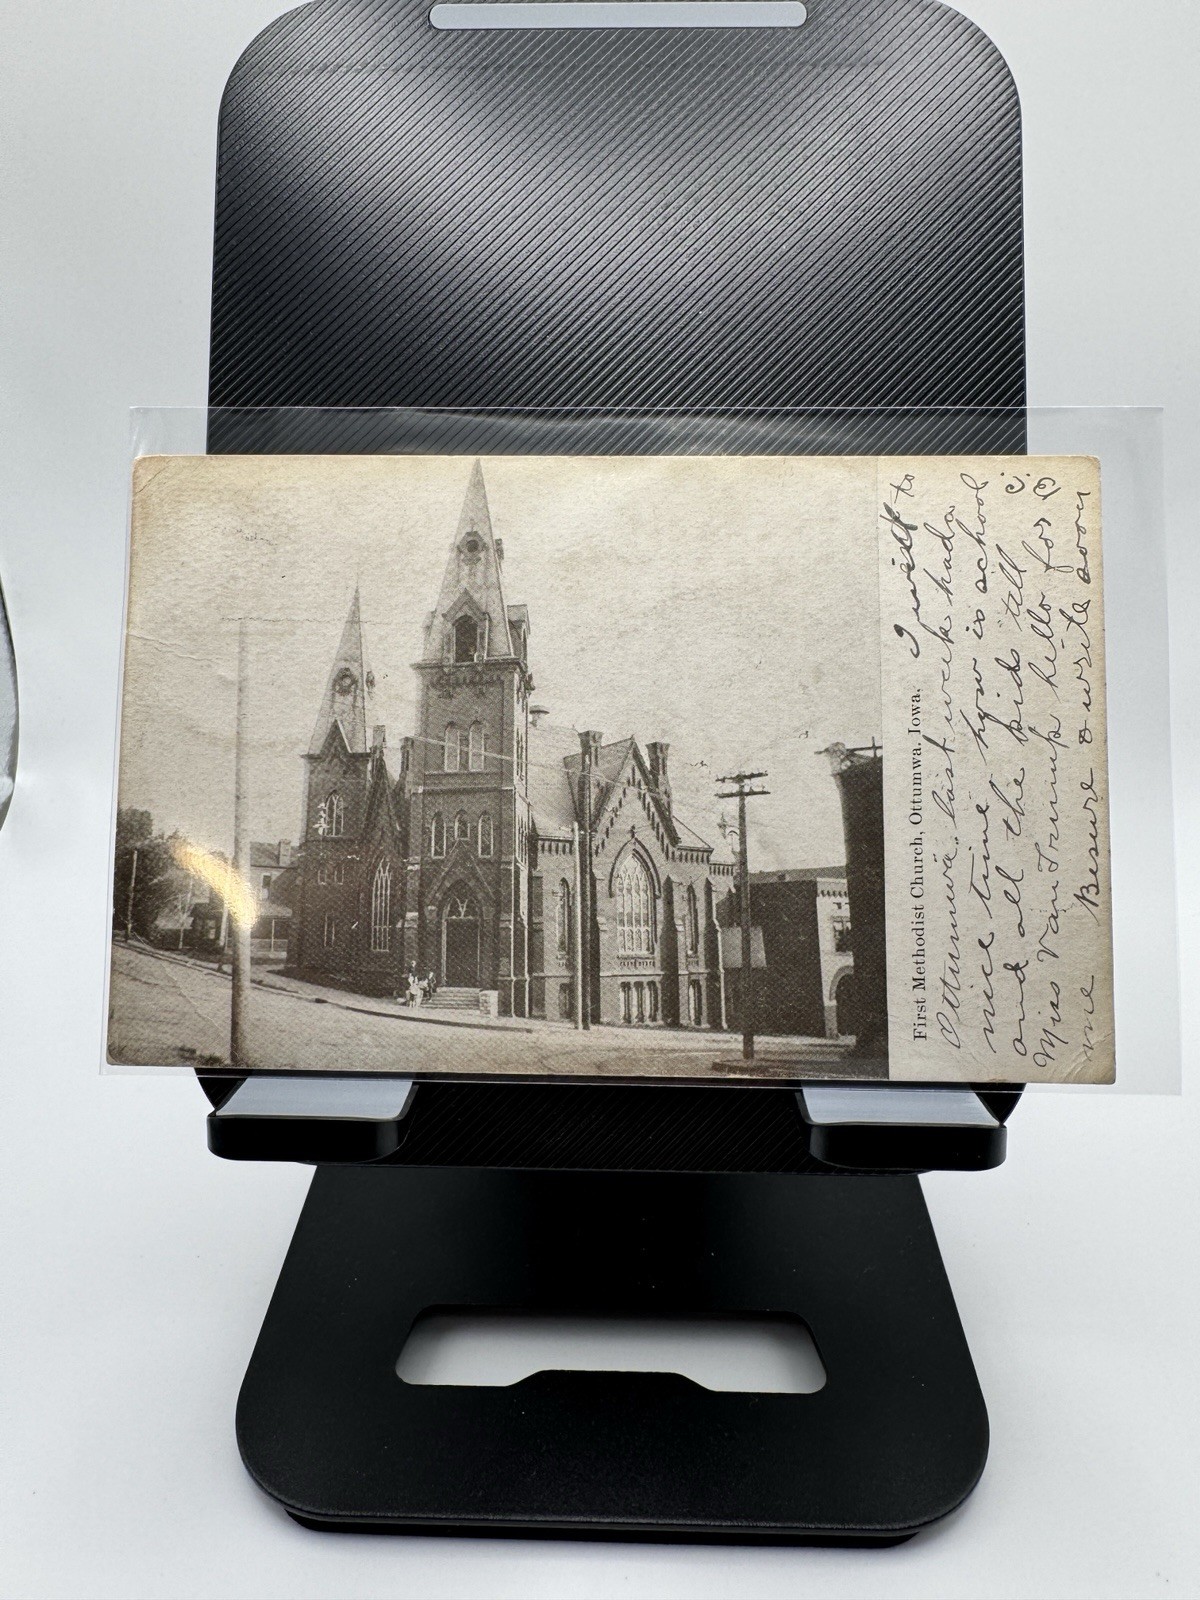 First Methodist Church, Ottumwa, Iowa.
I went to
Ottumwa last week had a
nice time how is school
and all the kids tell
Miss Van hello for
me Besure & write soon